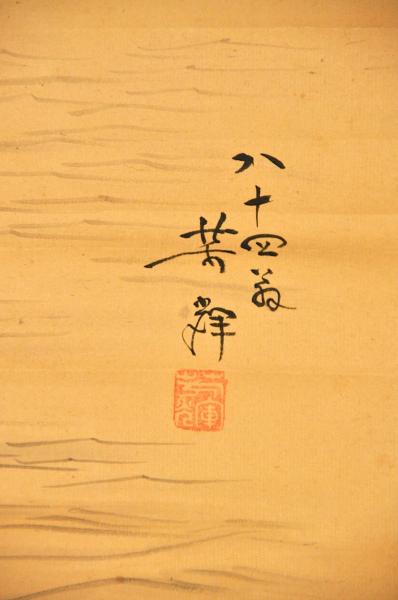 八十四翁
芳輝